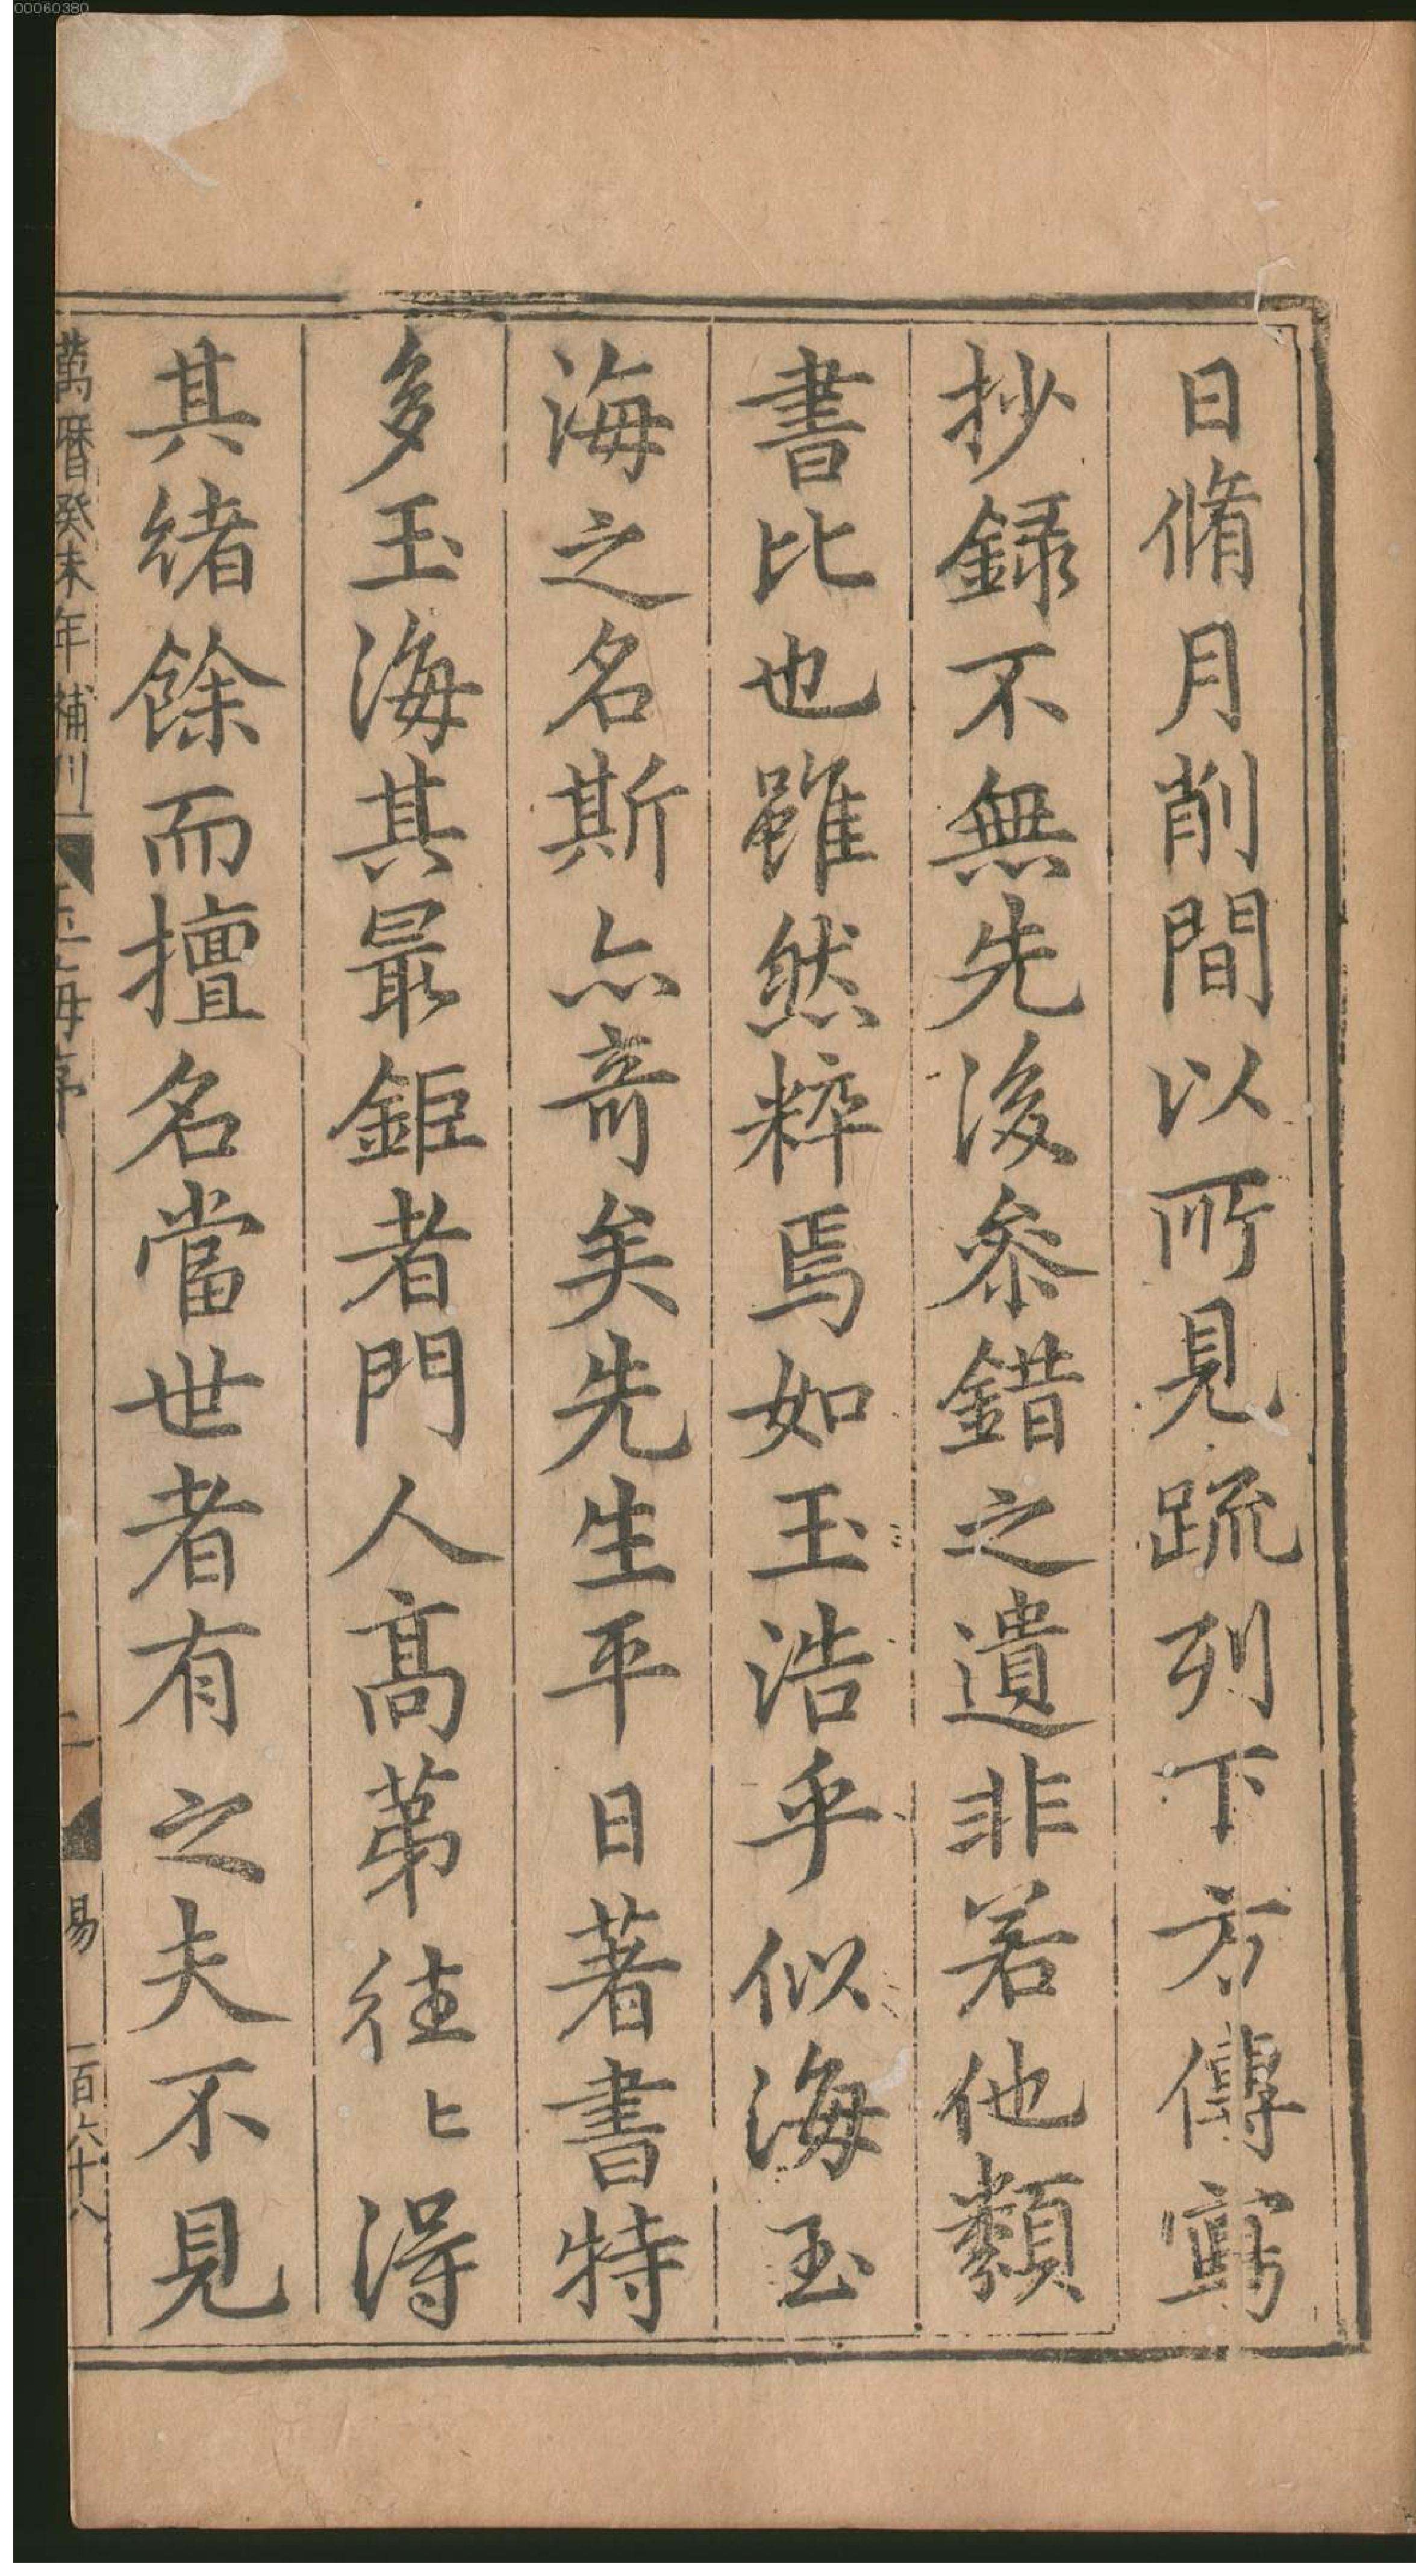 00060380
日脩月削間以所見疏列下方傳寫
抄録不無先後叅錯之遺非若他類
書比也雖然粹焉如玉浩乎似海玉
海之名斯亦竒矣先生平日著書特
多玉海其最鉅者門人髙苐徃〻得
其緒餘而擅名當世者有之夫不見
萬曆癸未年補刊 玉海序 二 易 一百六十八